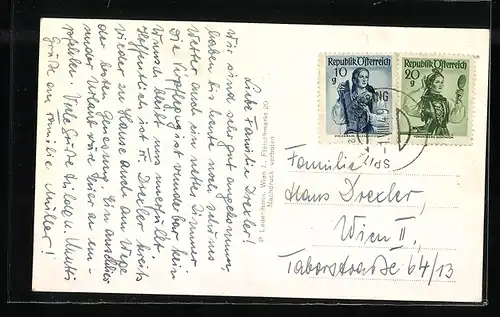 Liebe Familie Drexler!
Wir sind sehr gut angekommen,
haben bis heute noch schönes
Wetter und ein nettes Zimmer
Die Verpflegung ist wunderbar kein
Wunsch bleibt uns unerfüllt.
Hoffentlich ist Fr. Drexler bereits
wieder zu Hause und am Wege
der besten Genesung. Ein anschlies-
sender Urlaub wäre hier zu em-
pfehlen. Viele Grüße Mutti
Grüße an Familie Müller!
Ledermann, Wien I., Fleischmarkt 20
Nachdruck verboten
Republik Österreich
10
g
Republik Österreich
20
g
Familie
Hans Drexler,
Wien II.,
Taborstraße 64/13